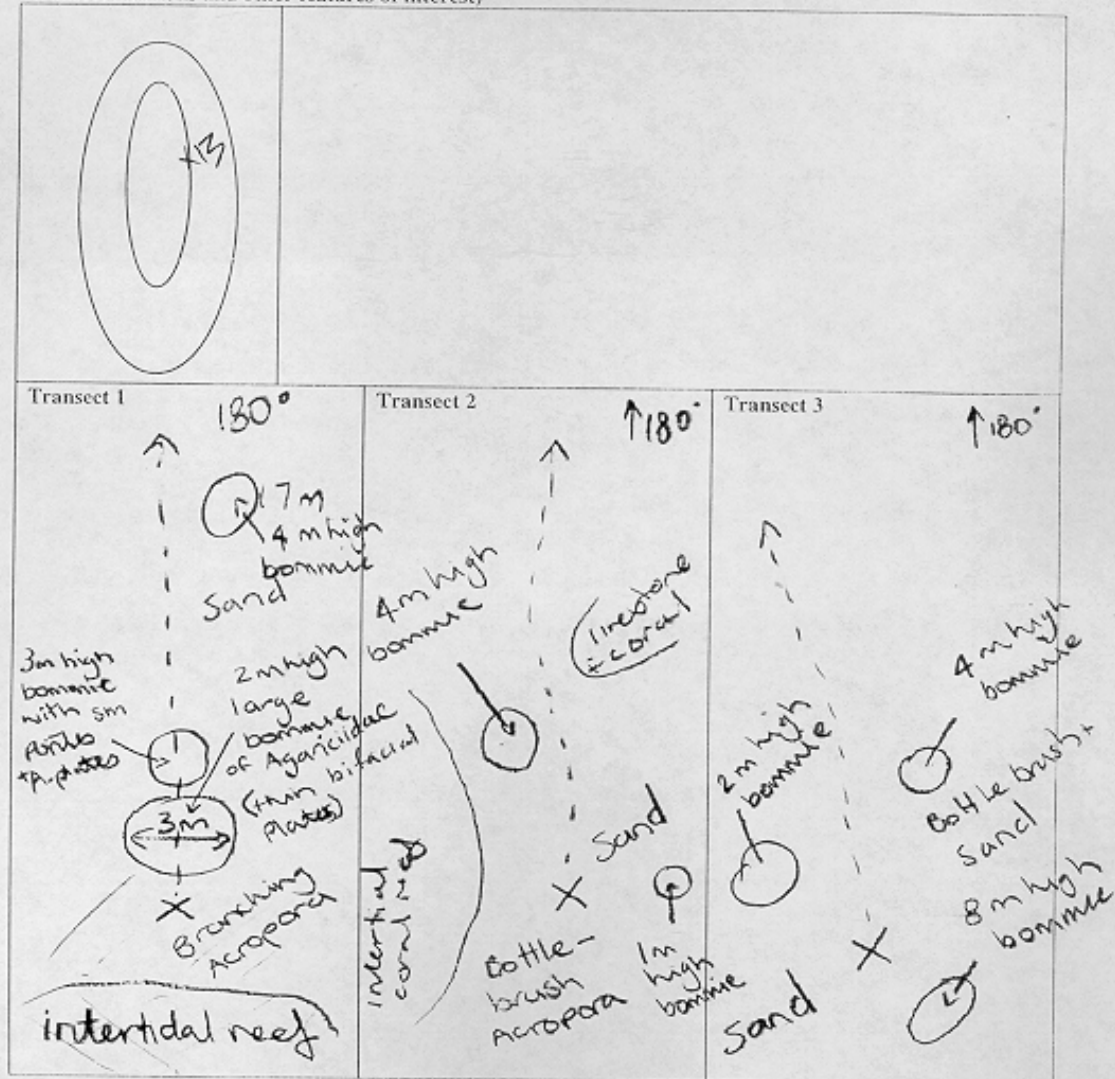 and other features of interest)
x13
Transect 1
180°
17m
4 m high
bommie
Sand
3m high
bommie
with sm
2m high
large
bommie
of Agariciidae
(thin bifacial
plates)
3m
Branching
Acropora
intertidal reef
Transect 2
↑180°
4m high
bommie
limestone
+ coral
Sand
intertidal
coral reef
Bottle-
brush
Acropora
1m
high
bommie
Transect 3
↑180°
4m high
bommie
2m high
bommie
Bottle brush +
Sand
8m high
bommie
Sand